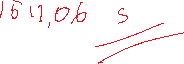 1511,06 s